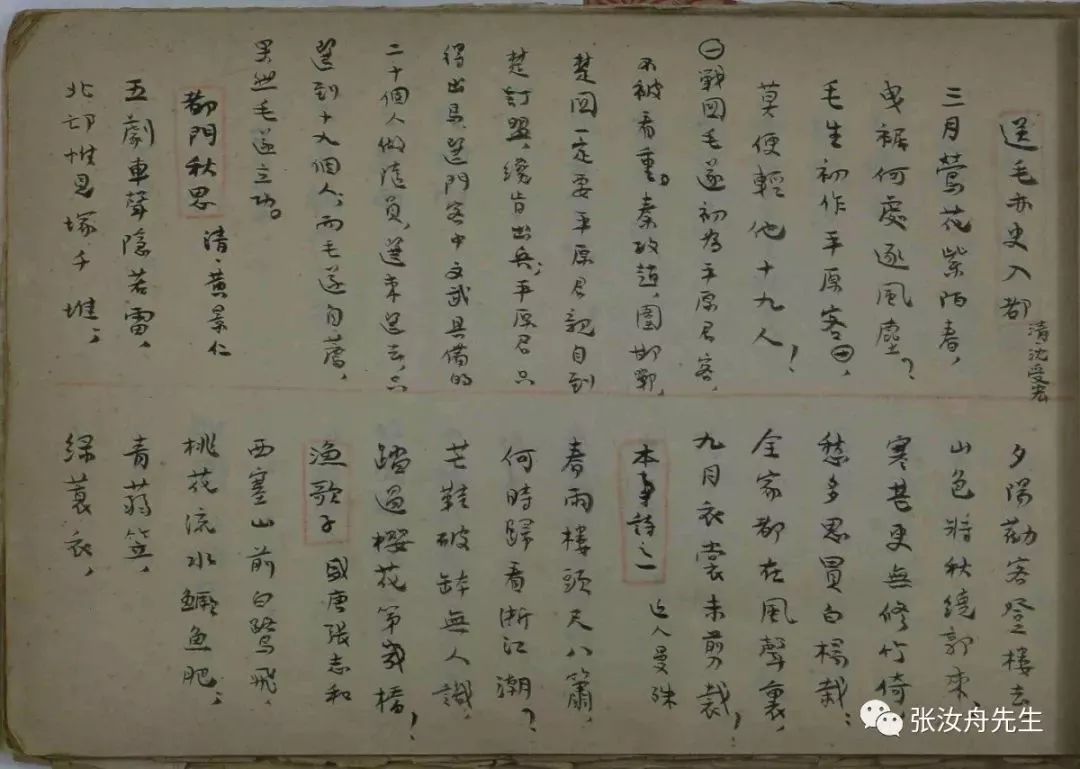 送毛亦史入都 清沈受宏
三月鶯花紫陌春，
曳裾何處逐風塵？
毛生初作平原客㊀，
莫便輕他十九人！
㊀戰国毛遂初为平原君客，
不被看重。秦攻趙，圍邯鄲，
楚国一定要平原君親自到
楚訂盟，纔肯出兵，平原君只
得出马，選門客中文武具備的
二十個人做随員，選來選去，只
選到十九個人，而毛遂自薦，
果然毛遂立功。
都門秋思 清·黄景仁
五劇車聲隐若雷，
北邙惟見塚千堆，
夕陽勸客登樓去
山色將秋繞郭來，
寒甚更無修竹倚，
愁多思買白楊栽；
全家都在風聲裏，
九月衣裳未剪裁！
本事詩之一 近人曼殊
春雨樓頭尺八簫，
何時歸看浙江潮？
芒鞋破鉢無人識，
踏過櫻花第幾橋！
渔歌子 唐張志和
西塞山前白鷺飛，
桃花流水鳜鱼肥，
青蒻笠，
绿蓑衣，
张汝舟先生